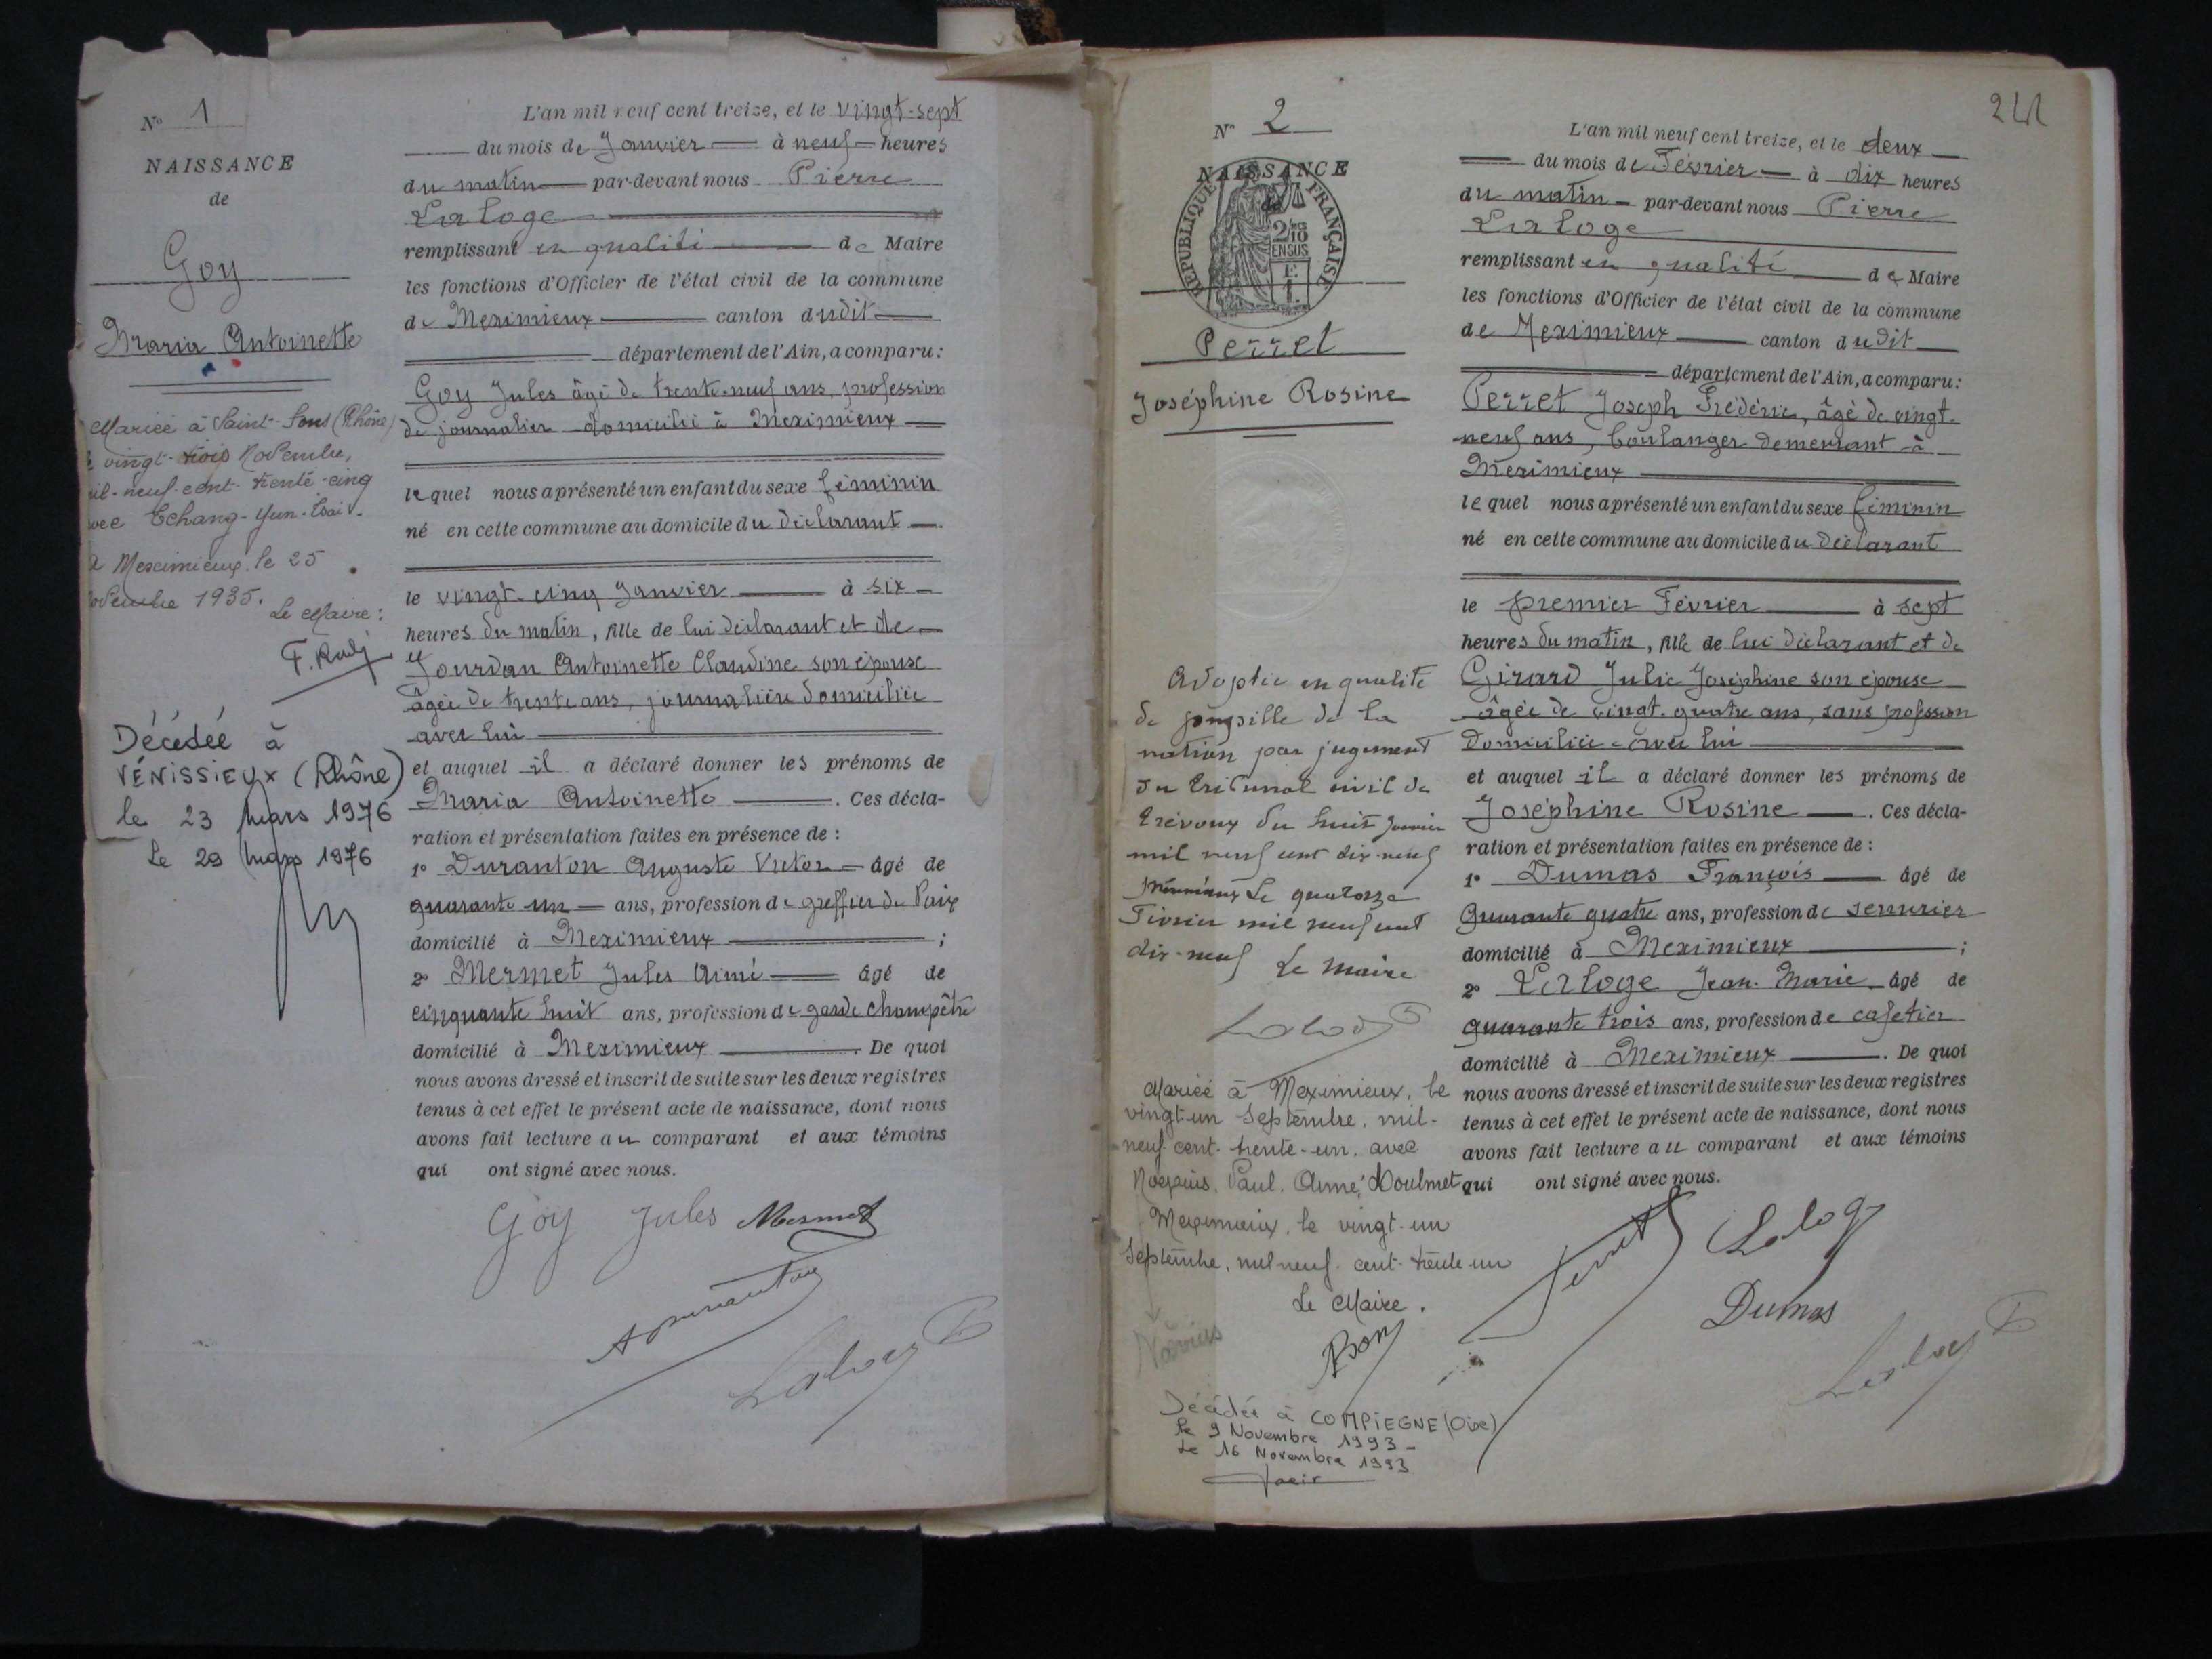 N° 1
NAISSANCE
de
Goy
Maria Antoinette
Mariée à Saint-Fons (Rhône)
vingt-trois Novembre,
mil-neuf-cent-trente-cinq
avec Tchang-Yun-Tsai.
Meximieux le 25
Novembre 1935.
Le Maire :
Décédée à
VÉNISSIEUX (Rhône)
le 23 Mars 1976
Le 29 Mars 1976
L'an mil neuf cent treize, et le vingt-sept
du mois de Janvier à neuf heures
du matin par-devant nous Pierre
Laloge
remplissant en qualité de Maire
les fonctions d'Officier de l'état civil de la commune
de Meximieux canton dudit
département de l'Ain, a comparu :
Goy Jules âgé de trente-neuf ans, profession
de journalier domicilié à Meximieux
lequel nous a présenté un enfant du sexe féminin
né en cette commune au domicile du déclarant
le vingt-cinq Janvier à six
heures du matin, fille de lui déclarant et de
Jourdan Antoinette Claudine son épouse
âgée de trente ans, journalière domiciliée
avec lui
et auquel il a déclaré donner les prénoms de
Maria Antoinette. Ces décla-
ration et présentation faites en présence de :
1° Duranton Auguste Victor âgé de
quarante un ans, profession de greffier de Paix
domicilié à Meximieux ;
2° Mermet Jules Aimé âgé de
cinquante huit ans, profession de garde champêtre
domicilié à Meximieux. De quoi
nous avons dressé et inscrit de suite sur les deux registres
tenus à cet effet le présent acte de naissance, dont nous
avons fait lecture au comparant et aux témoins
qui ont signé avec nous.
Goy Jules Mermet
A Duranton
Laloge P
241
N° 2
NAISSANCE
de
RÉPUBLIQUE FRANÇAISE
2/10
EN SUS
Perret
Joséphine Rosine
Adoptée en qualité
de pupille de la
nation par jugement
du tribunal civil de
Trévoux du huit Janvier
mil neuf cent dix-neuf
Meximieux Le quatorze
Février mil neuf cent
dix-neuf Le Maire
Laloge P
Mariée à Meximieux, le
vingt-un Septembre, mil-
neuf-cent-trente-un, avec
Paul, Aimé, Doulmet
Meximieux, le vingt-un
Septembre, mil neuf-cent-trente-un
Le Maire.
Décédée à COMPIEGNE (Oise)
le 9 Novembre 1993 -
Le 16 Novembre 1993
L'an mil neuf cent treize, et le deux
du mois de Février à dix heures
du matin par-devant nous Pierre
Laloge
remplissant en qualité de Maire
les fonctions d'Officier de l'état civil de la commune
de Meximieux canton dudit
département de l'Ain, a comparu :
Perret Joseph Frédéric, âgé de vingt-
neuf ans, boulanger demeurant à
Meximieux
lequel nous a présenté un enfant du sexe féminin
né en cette commune au domicile du déclarant
le premier Février à sept
heures du matin, fille de lui déclarant et de
Girard Julie Joséphine son épouse
âgée de vingt-quatre ans, sans profession
domiciliée avec lui
et auquel il a déclaré donner les prénoms de
Joséphine Rosine. Ces décla-
ration et présentation faites en présence de :
1° Dumas François âgé de
quarante quatre ans, profession de serrurier
domicilié à Meximieux ;
2° Laloge Jean-Marie âgé de
quarante trois ans, profession de cafetier
domicilié à Meximieux. De quoi
nous avons dressé et inscrit de suite sur les deux registres
tenus à cet effet le présent acte de naissance, dont nous
avons fait lecture au comparant et aux témoins
qui ont signé avec nous.
Perret Laloge
Dumas
Laloge P